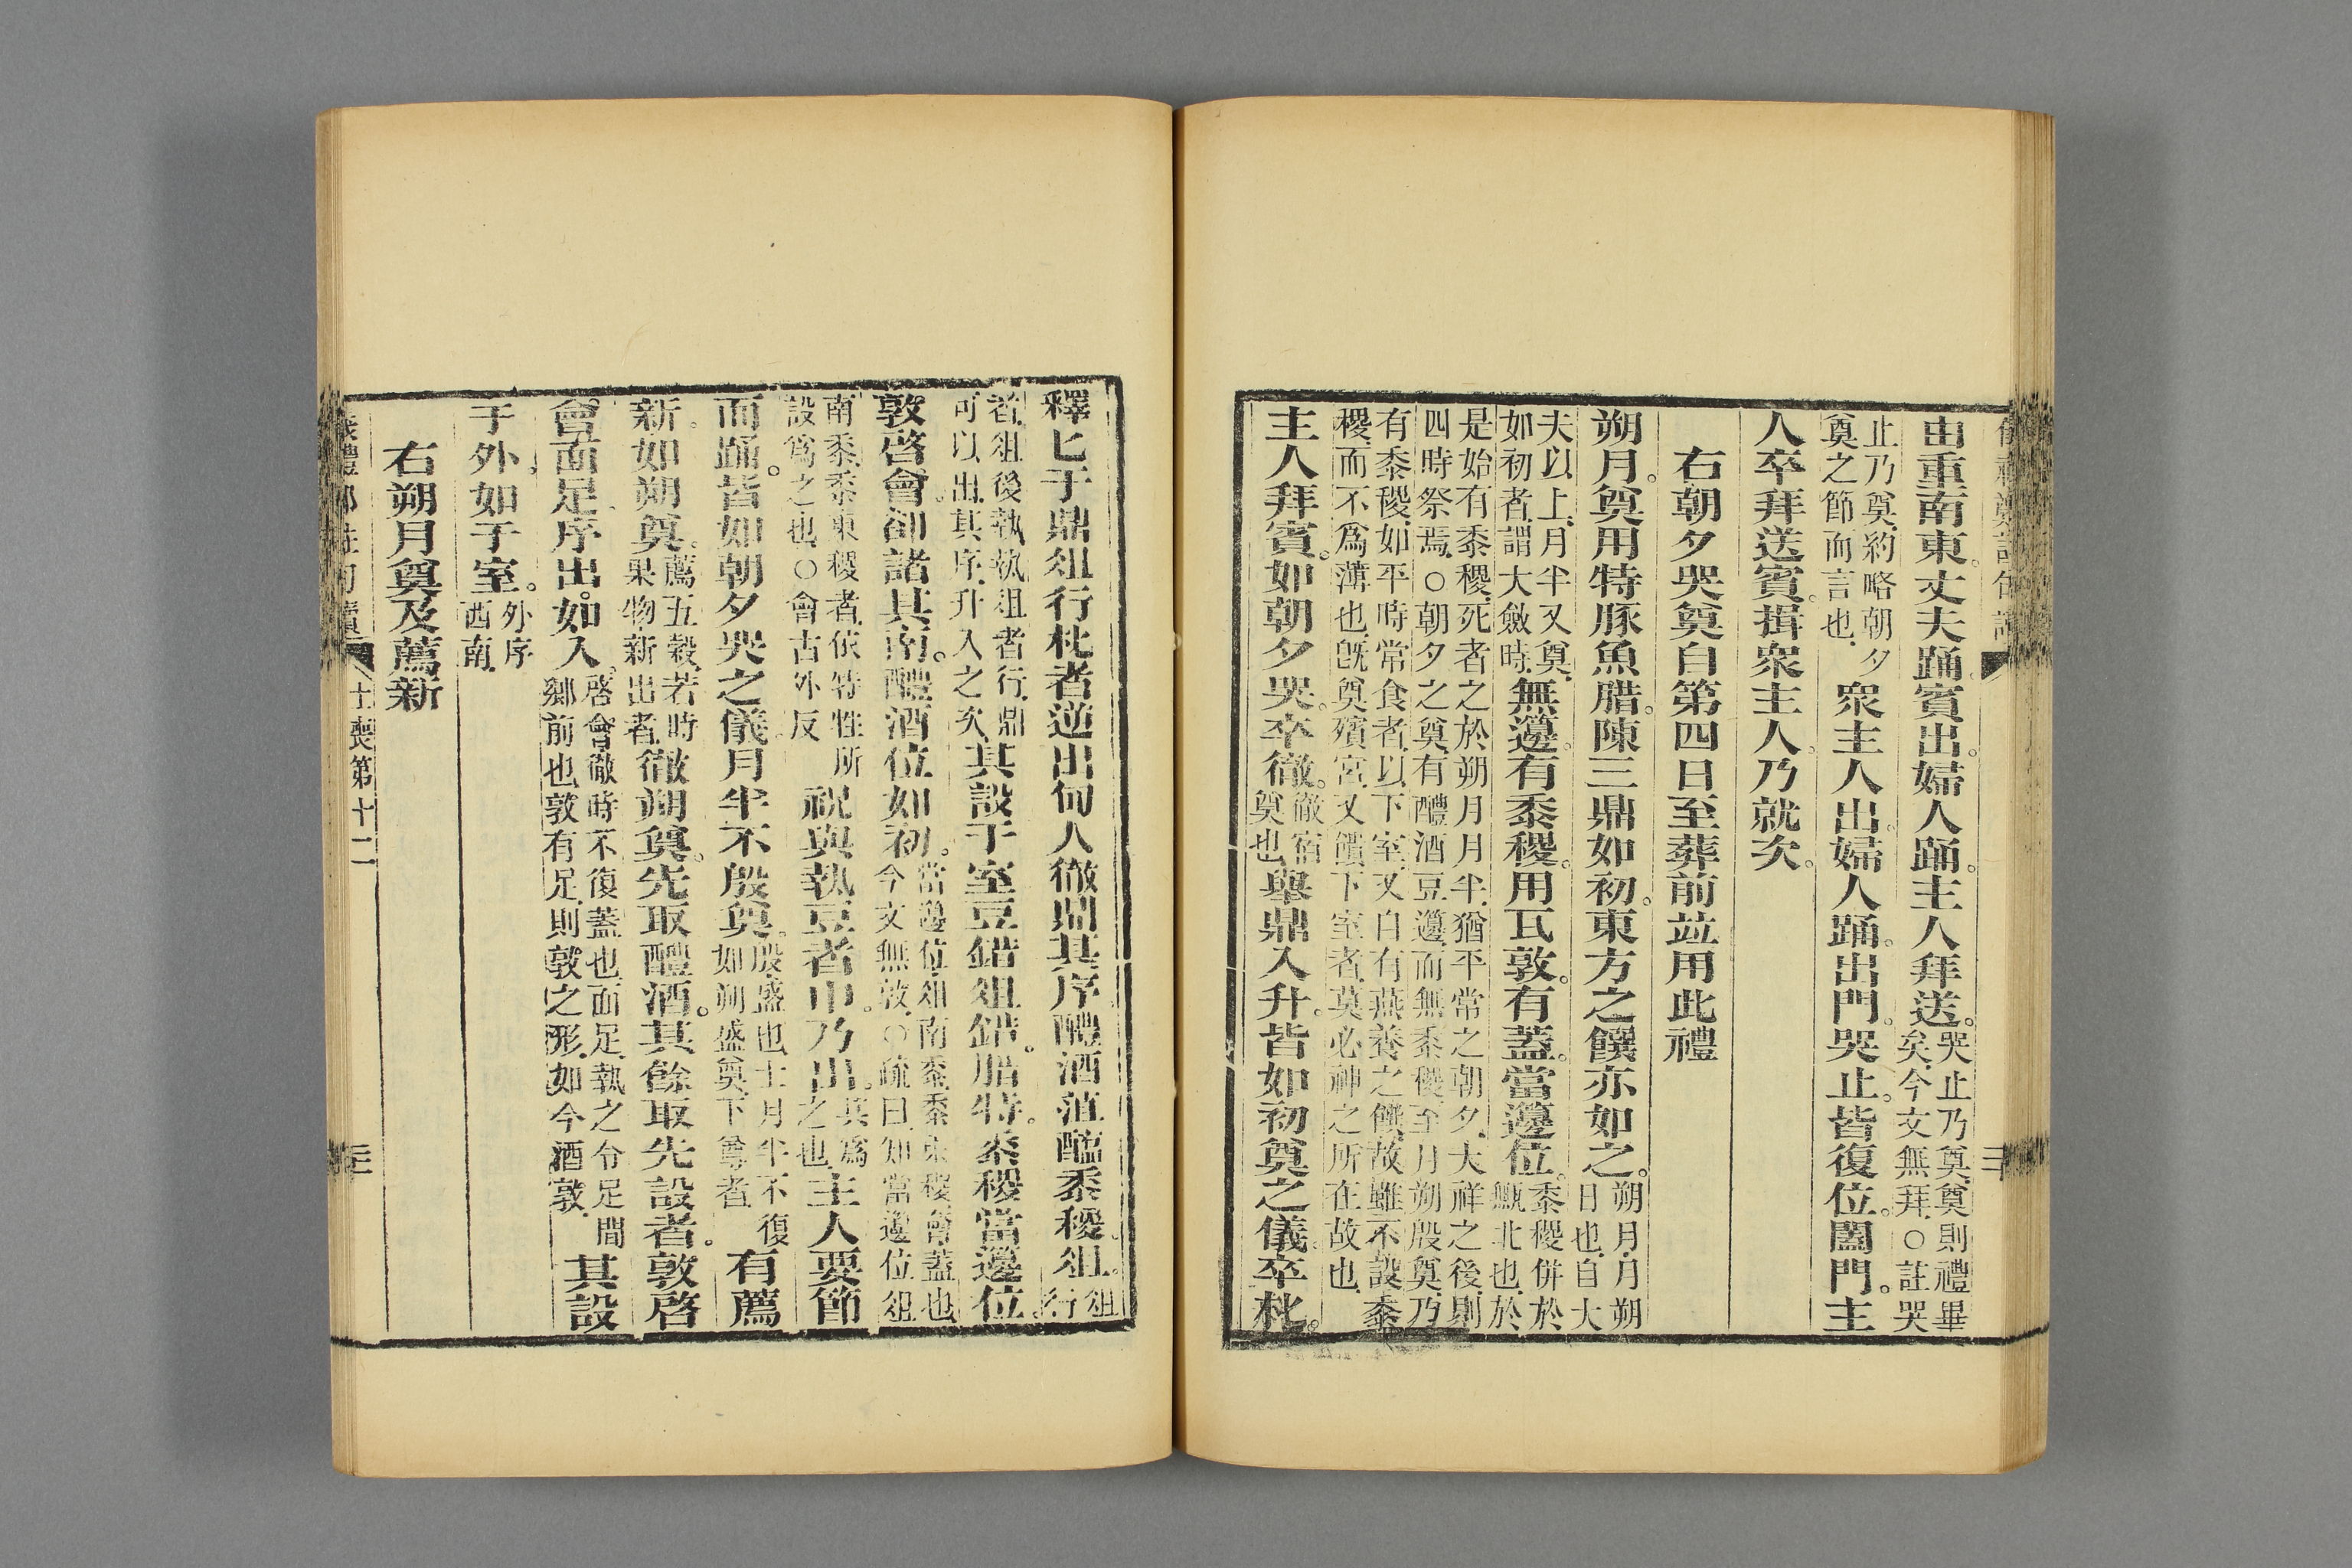 由重南東丈夫踊賓出婦人踊主人拜送哭止乃奠奠則禮畢矣今文無拜○註哭
止乃奠約略朝夕奠之節而言也衆主人出婦人踊出門哭止皆復位闔門主
人卒拜送賓揖衆主人乃就次
右朝夕哭奠自第四日至葬前竝用此禮
朔月奠用特豚魚腊陳三鼎如初東方之饌亦如之朔月月朔日也自大
夫以上月半又奠如初者謂大斂時無籩有黍稷用瓦敦有蓋當籩位黍稷併於甒北也於
是始有黍稷死者之於朔月月半猶平常之朝夕大祥之後則四時祭焉○朝夕之奠有醴酒豆籩而無黍稷至月朔殷奠乃
有黍稷如平時常食者以下室又自有燕養之饌故雖不設黍稷而不爲薄也旣奠殯宮又饋下室者莫必神之所在故也
主人拜賓如朝夕哭卒徹徹宿奠也舉鼎入升皆如初奠之儀卒朼
釋匕于鼎俎行朼者逆出甸人徹鼎其序醴酒菹醢黍稷俎俎行
者俎後執執俎者行鼎可以出其序升入之次其設于室豆錯俎錯腊特黍稷當籩位
敦啓會卻諸其南醴酒位如初當籩位俎南黍黍東稷會蓋也今文無敦○疏曰知當籩位俎
南黍黍東稷者依特牲所設爲之也○會古外反祝與執豆者巾乃出共爲之也主人要節
而踊皆如朝夕哭之儀月半不殷奠殷盛也士月半不復如朔盛奠下尊者有薦
新如朔奠薦五穀若時果物新出者徹朔奠先取醴酒其餘取先設者敦啓
會面足序出如入啓會徹時不復蓋也面足執之令足間鄉前也敦有足則敦之形如今酒敦其設
于外如于室外序西南
右朔月奠及薦新
儀禮鄭註句讀 士喪第十二